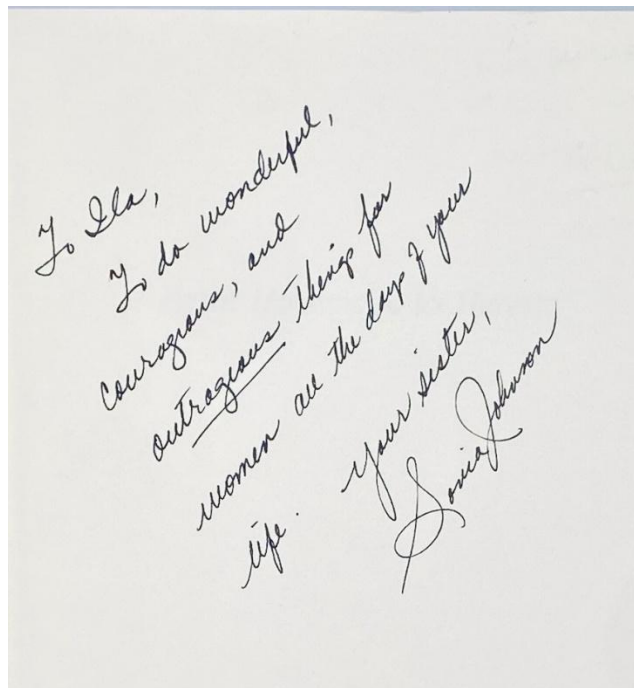 To Ila,
To do wonderful,
courageous, and
outrageous things for
women all the days of your
life.
Your sister,
Sonia Johnson